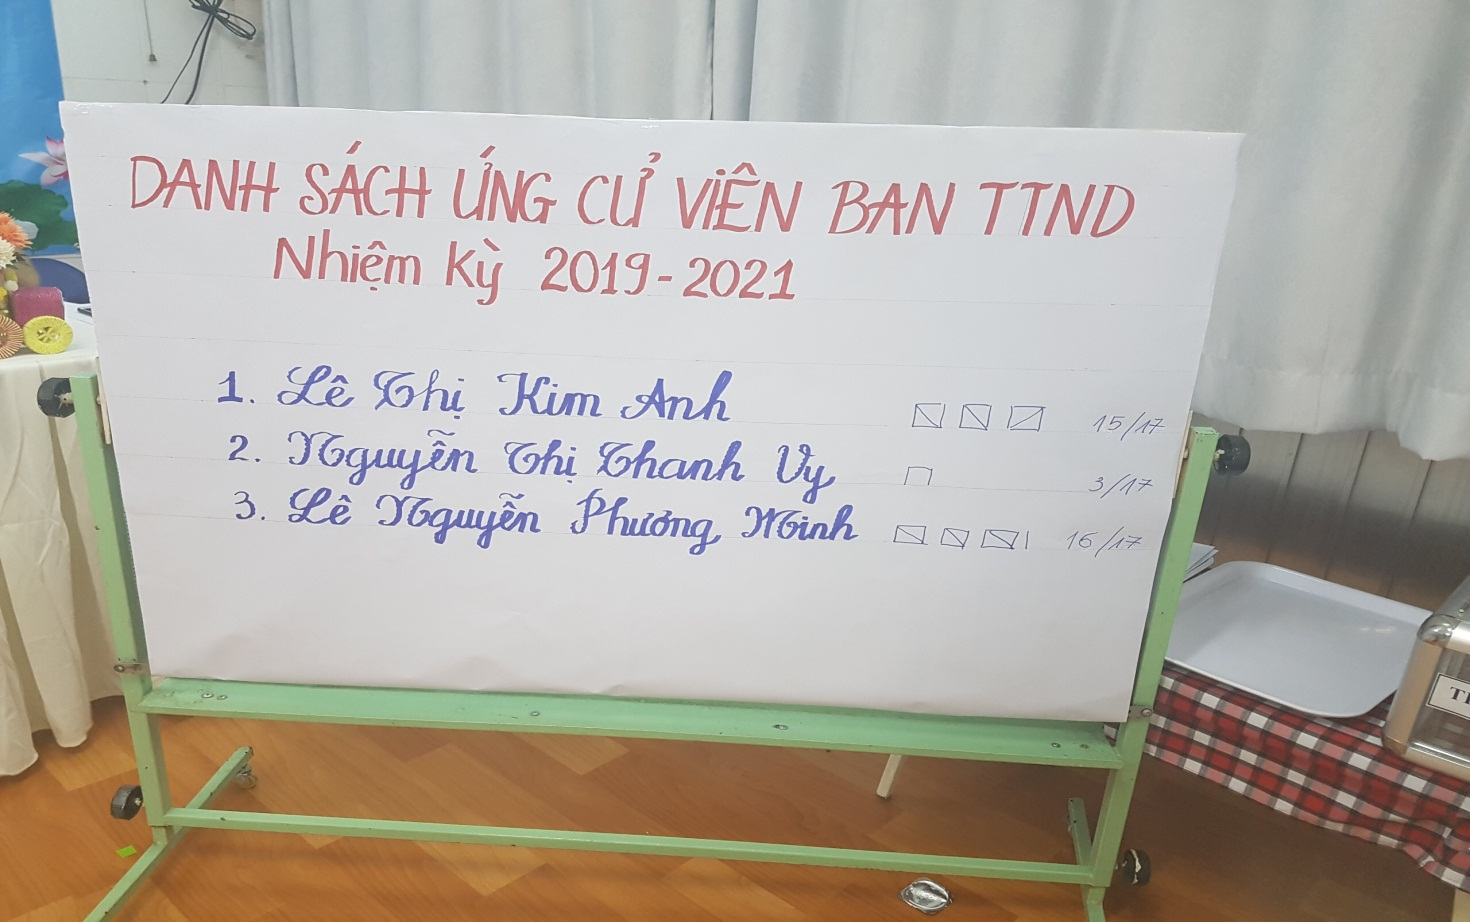 DANH SÁCH ỨNG CỬ VIÊN BAN TTND
Nhiệm kỳ 2019-2021
1. Lê Thị Kim Anh 15/17
2. Nguyễn Thị Thanh Vy 3/17
3. Lê Nguyễn Phương Minh 16/17